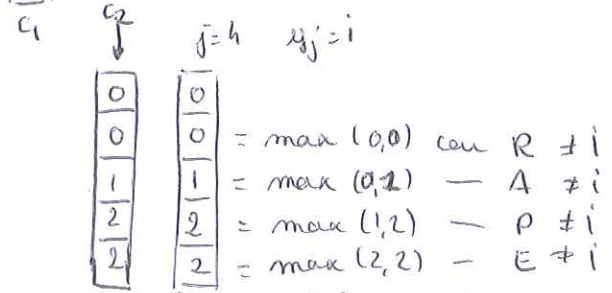 c1 c2 j=4 yj=i
0 0
0 0 = max (0,0) car R ≠ i
1 1 = max (0,1) — A ≠ i
2 2 = max (1,2) — P ≠ i
2 2 = max (2,2) — E ≠ i